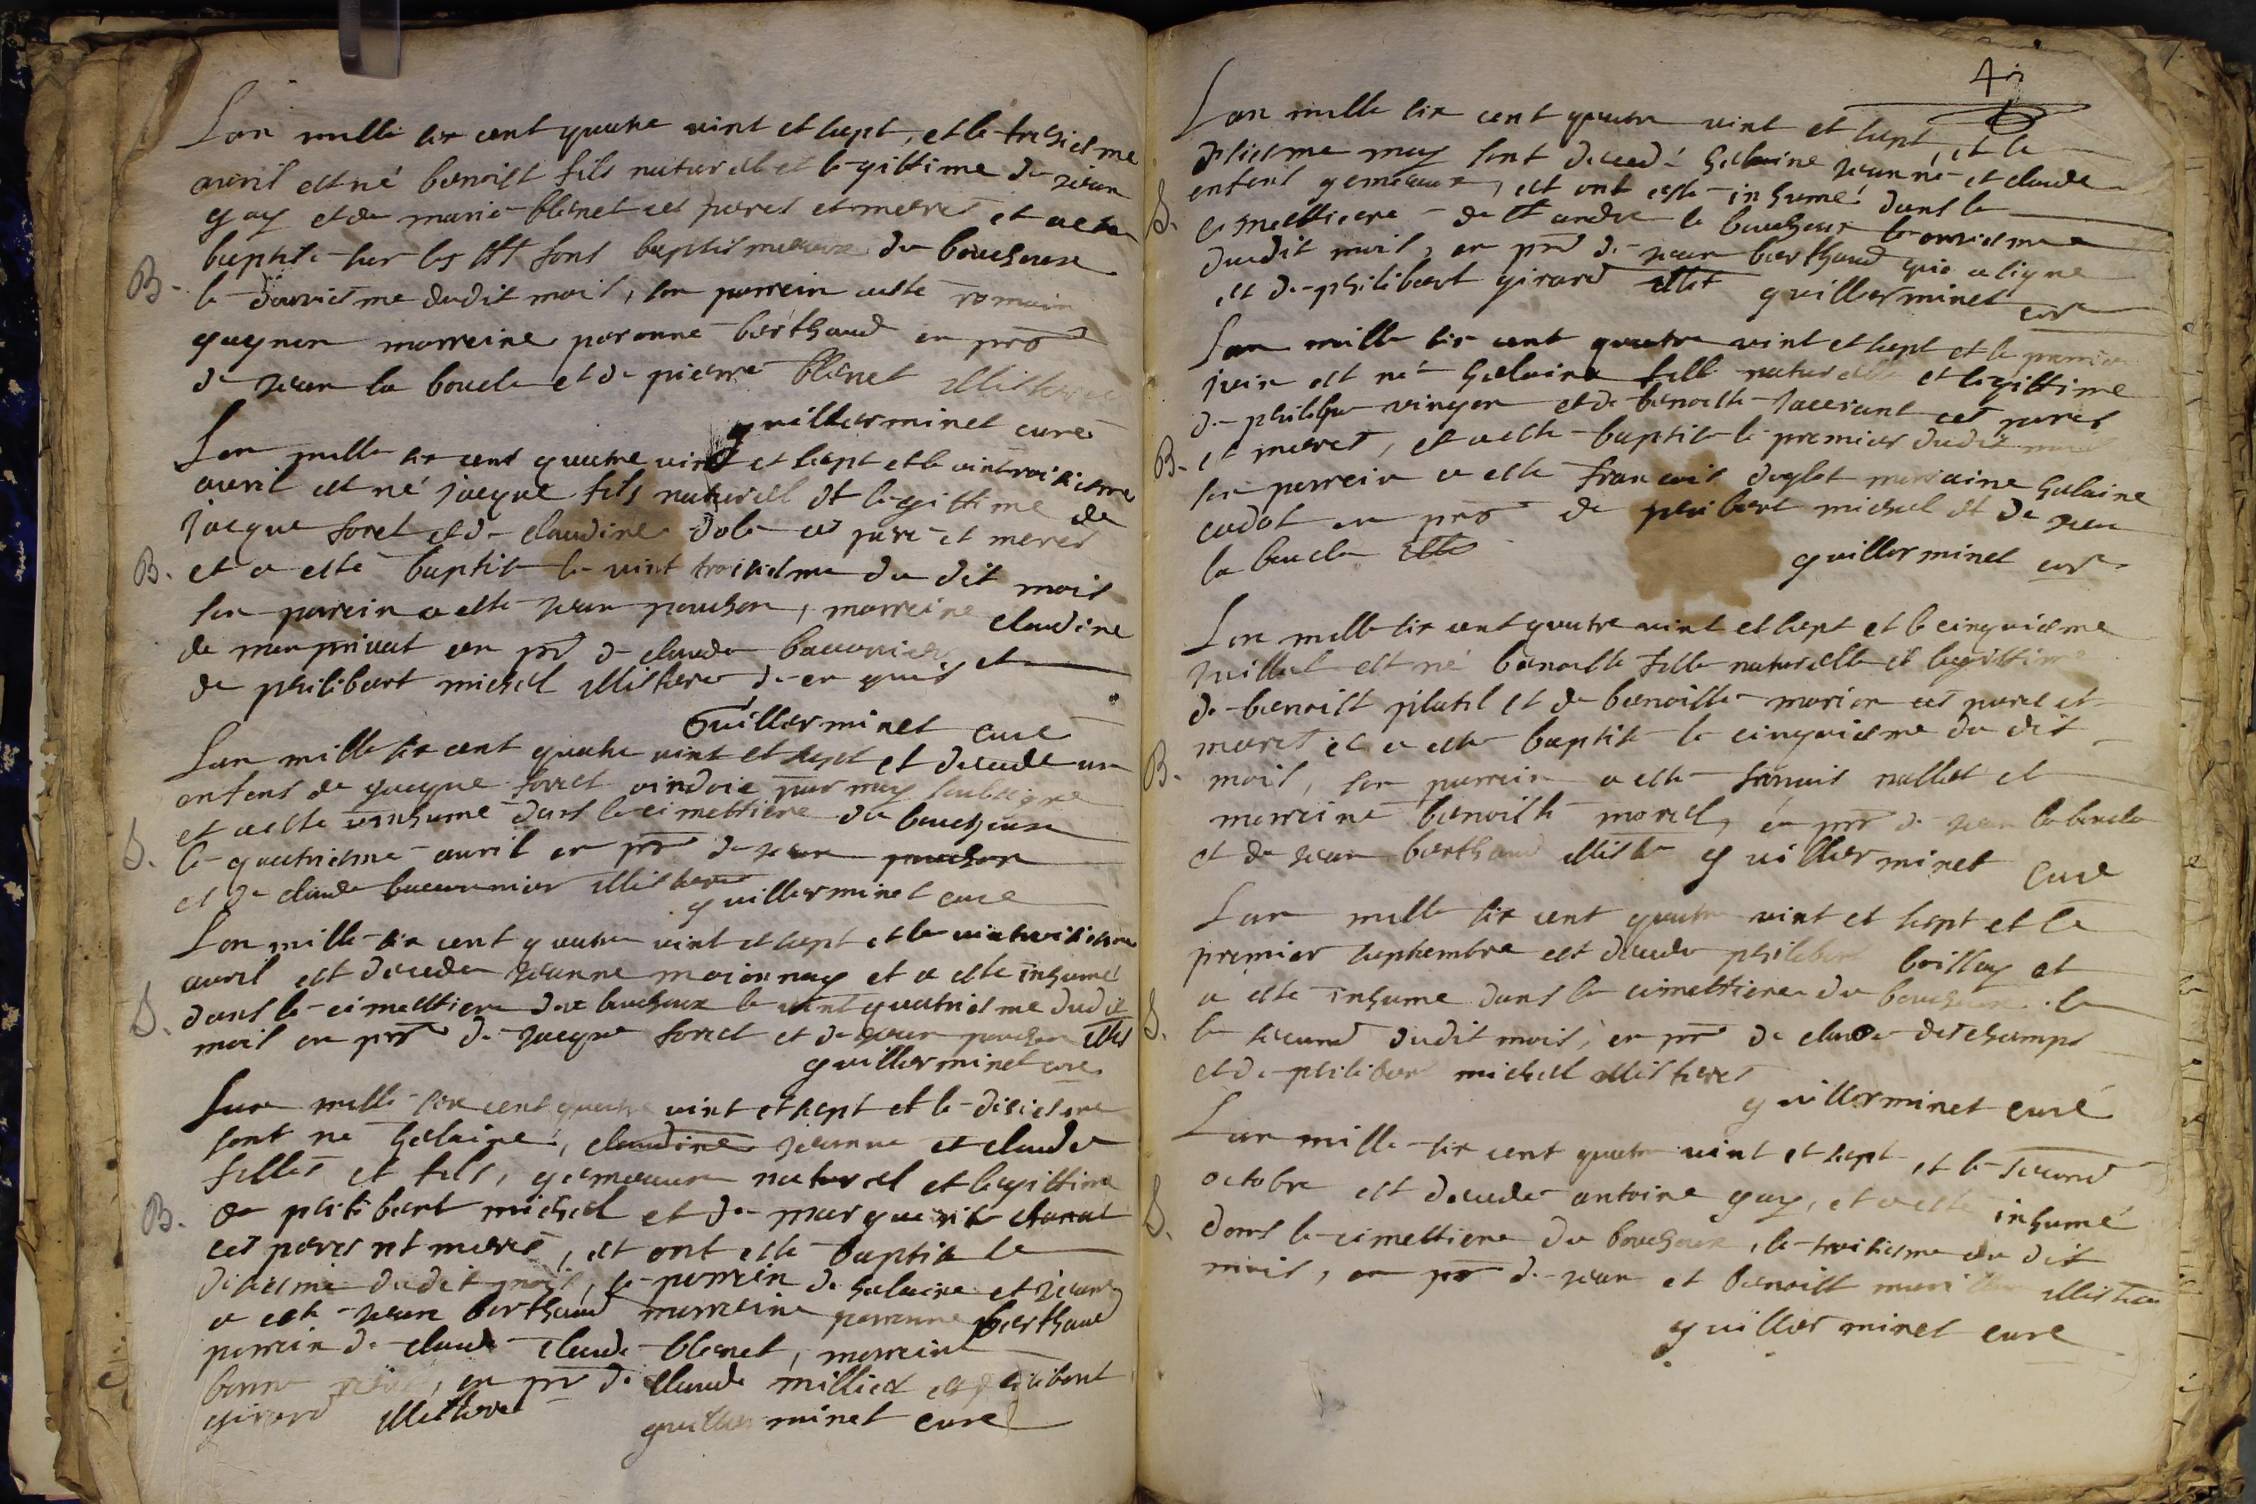 Lan mille six cent quatre vint et sept, et le tresiesme
avril est né benoist fils naturel et legittime de jean
gay et de marie blenet ces peres et meres et a este
baptise sur les fons baptismeaux du bouchoux
B. le douviesme dudit mois, son parrein a este romain
gagnon marreine peronne berthaud en pre
de jean la boucle et de pierre blenet illisteres
guillerminet curé
Lan mille six cens quatre vint et sept et le vintroisiesme
avril est né jacque fils naturel et legittime de
jacque foret et de claudine dole ces pere et meres
B. et a esté baptise le vint troisiesme du dit mois
son parrein a este jean pouchon, marreine claudine
de monprivat en pre de claude bauvernier et
de philibert michel illisteres de en quis
Guillerminet curé
Lan mille six cent quatre vint et sept et decede un
enfens de jacque foret ondoie par moy soubsigne
et a este inhume dans le cimettiere du bouchoux
S. le quatriesme avril en pre de jean pouchon
et de claude bauvernier illisteres
guillerminet curé
Lan mille six cent quatre vint et sept et le vintroisiesme
avril est decedee jeanne moionnay et a este inhumé
S. dans le cimettiere du bouchoux le vint quatriesme dudit
mois en pre de jacque foret et de jean pouchon illis
guillerminet curé
Lan mille six cent quatre vint et sept et le disiesme
sont ne helaine, claudine jeanne et claude
filles et fils, gemeaux naturel et legittime
B. de philibert michel et de marguerite
ces peres et meres, et ont este baptise le
disiesme dudit mois, le parrein de helaine et jeanne
a este jean berthaud marreine peronne berthaud
parrein de claude claude blenet, marreine
benne, en pre de claude milliet et philibert
girard illisteres guillerminet curé
Lan mille six cent quatre vint et sept, et le
disiesme may sont decedé helaine jeanne et claude
enfens gemeaux, et ont este inhumé dans le
S. cimettiere de st andre le bouchoux le onviesme
dudit mois, en pre de jean berthaud qui a signe
et de philibert girard illit guillerminet curé
Lan mille six cent quatre vint et sept et le premier
juin est né helaine fille naturelle et legittime
de philippe vingon et de benoiste jacerant ces peres
B. et meres, et a este baptise le premier dudit mois
son parrein a este francois duglot marraine helaine
cadot en pre de philibert michel et de jean
la boucle illis
guillerminet curé
Lan mille six cent quatre vint et sept et le cinquiesme
juillet est né benoiste fille naturelle et legittime
de benoist pilatel et de benoiste marion ces peres et
meres et a este baptise le cinquiesme du dit
B. mois, son parrein a este francois nallet et
marreine benoiste morel, en pre de jean la boucle
et de jean berthaud illiste guillerminet curé
Lan mille six cent quatre vint et sept et le
premier septembre est decede philibert boissay et
a este inhume dans le cimettiere du bouchoux le
S. le second dudit mois, en pre de claude deschamps
et de philibert michel illisteres
guillerminet curé
Lan mille six cent quatre vint et sept et le second
octobre est decede antoine gay, et a este inhumé
S. dans le cimettiere du bouchoux, le troisiesme du dit
mois, en pre de jean et benoist illisteres
guillerminet curé